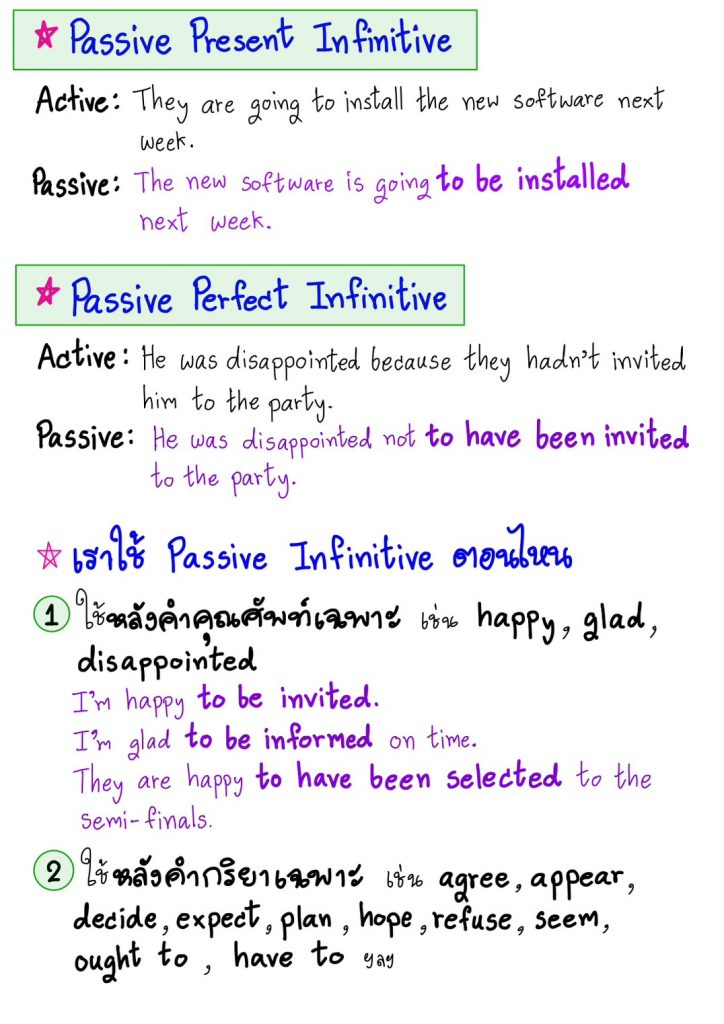 Passive Present Infinitive
Active: They are going to install the new software next
week.
Passive: The new software is going to be installed
next week.
Passive Perfect Infinitive
Active: He was disappointed because they hadn't invited
him to the party.
Passive: He was disappointed not to have been invited
to the party.
เราใช้ Passive Infinitive ตอนไหน
1 ใช้หลังคำคุณศัพท์เฉพาะ เช่น happy, glad,
disappointed
I'm happy to be invited.
I'm glad to be informed on time.
They are happy to have been selected to the
semi-finals.
2 ใช้หลังคำกริยาเฉพาะ เช่น agree, appear,
decide, expect, plan, hope, refuse, seem,
ought to, have to